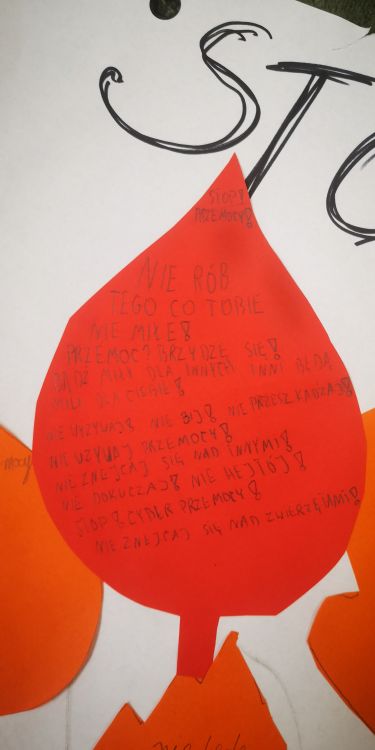 STO
STOP!
PRZEMOCY!
NIE RÓB
TEGO CO TOBIE
NIE MIŁE!
PRZEMOC? BRZYDZĘ SIĘ!
BĄDŹ MIŁY DLA INNYCH INNI BĘDĄ
MILI DLA CIEBIE!
NIE WYZYWAJ! NIE BIJ! NIE PRZESZKADZAJ!
NIE UZYWAJ PRZEMOCY!
NIE ZNĘJCAJ SIĘ NAD INNYMI!
NIE DOKUCZAJ! NIE HEJTÓJ!
STOP! CYBER PRZEMOCY!
NIE ZNEJCAJ SIĘ NAD ZWIERZĘTAMI!